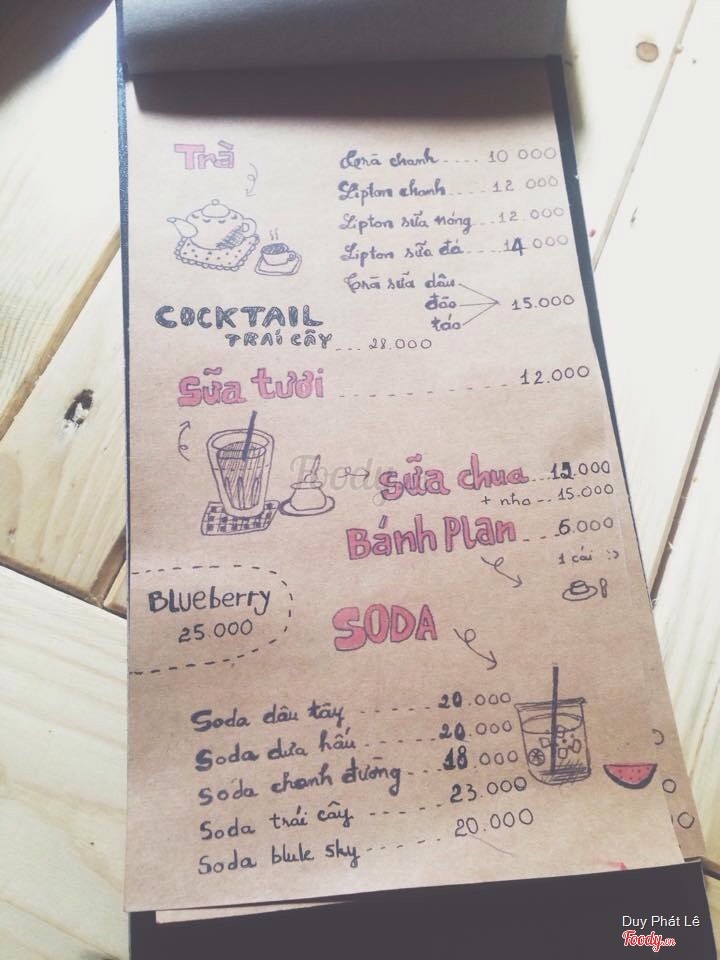 Trà
Trà chanh .... 10 000
Lipton chanh ... 12 000
Lipton sữa nóng .. 12.000
Lipton sữa đá ... 14 000
Trà sữa dâu
đào
táo
15.000
COCKTAIL
TRÁI CÂY ... 28.000
Sữa tươi ........ 12.000
Sữa chua ... 12.000
+ nho -- 15.000
Bánh Plan ... 6.000
1 cái :>
Blueberry
25.000
SODA
Soda dâu tây ...... 20.000
Soda dưa hấu ..... 20.000
Soda chanh đường .. 18.000
Soda trái cây ...... 23.000
Soda blule sky ..... 20.000
Foody
Duy Phát Lê
Foody.vn